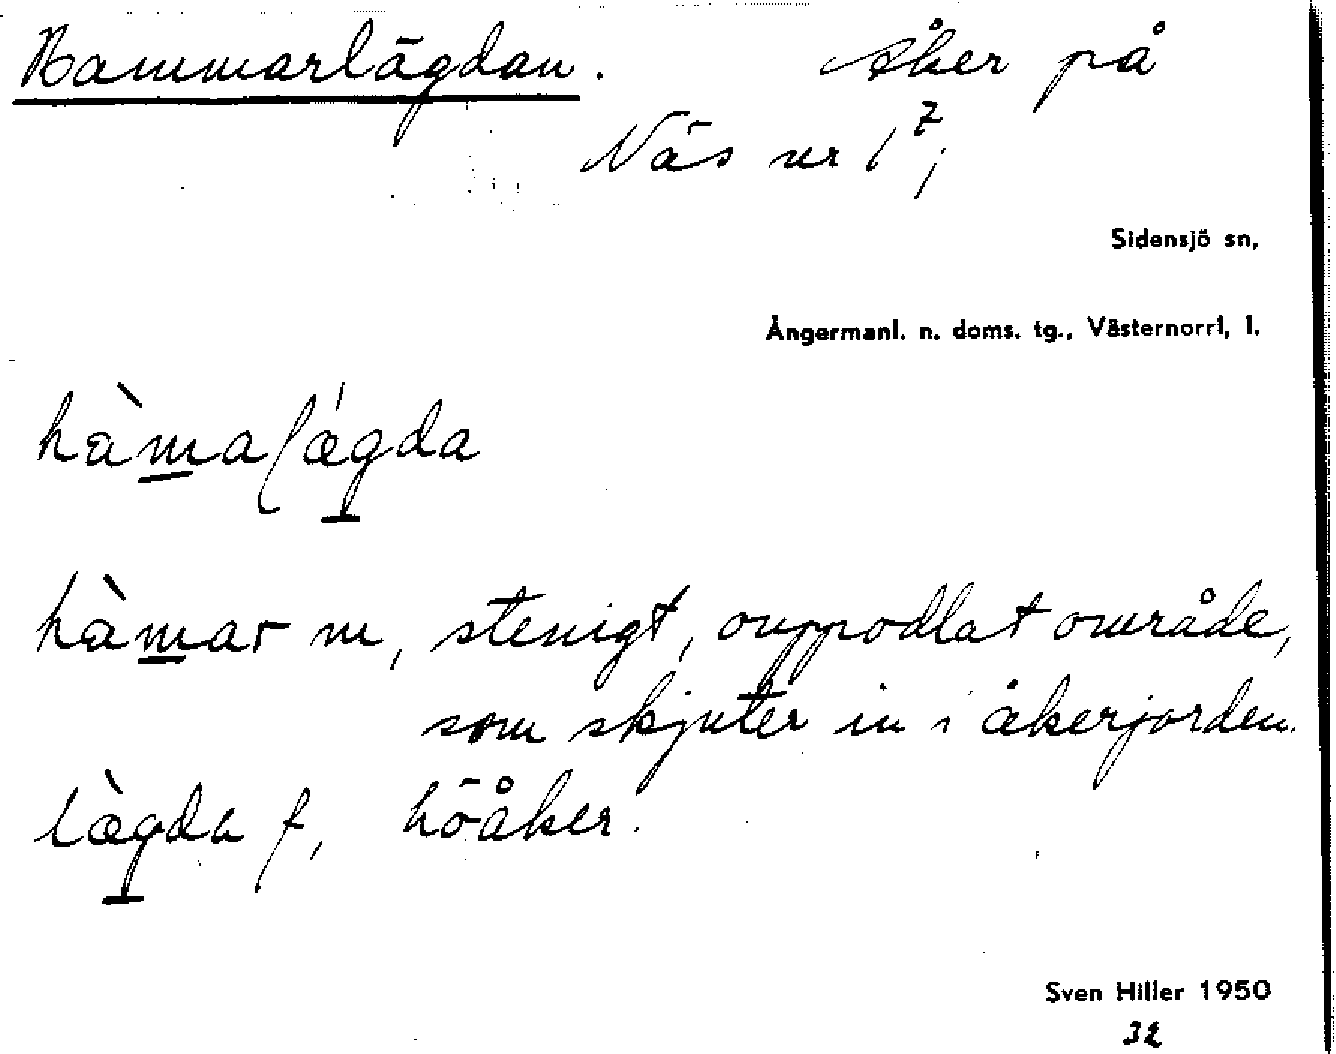 Hammarlägdan. åker på
Näs nr 1⁷;
Sidensjö sn,
Ångermanl. n. doms. tg., Västernorrl, l.
hàmaláegda
hàmar m, stenigt, ouppodlat område,
som skjuter in i åkerjorden.
làegda f, höåker.
Sven Hiller 1950
32